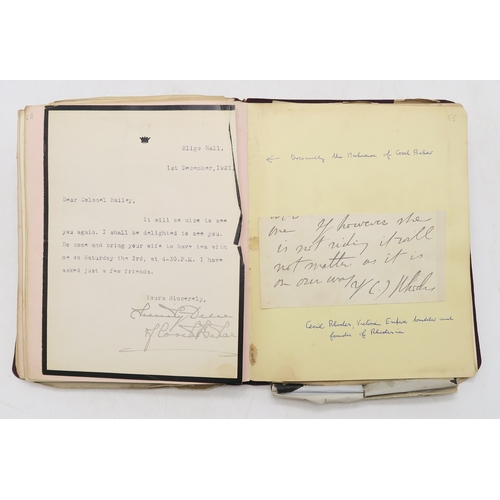 Sligo Hall,
1st December, 1921.
Dear Colonel Bailey,
It will be nice to see
you again. I shall be delighted to see you.
Do come and bring your wife to have tea with
me on Saturday the 3rd, at 4-30.P.M. I have
asked just a few friends.
Yours Sincerely,
of
of Cooch Behar
one If however she
is not riding it will
not matter as it is
on our way C J Rhodes
Cecil Rhodes, Victorian Empire builder and
founder of Rhodesia